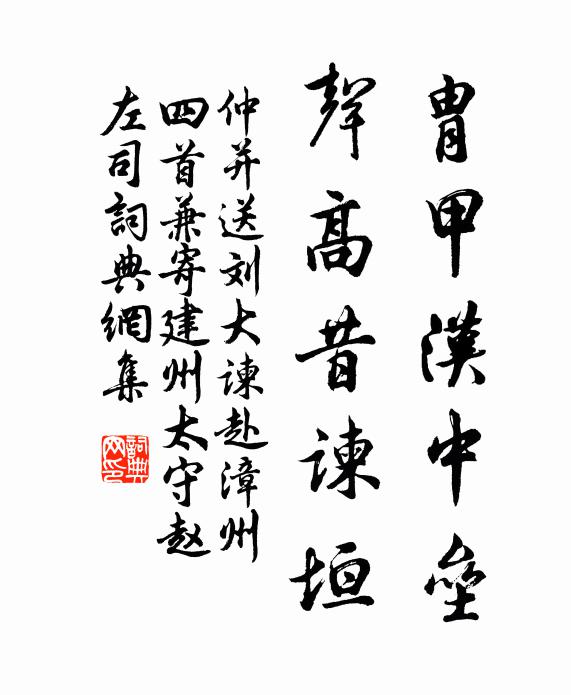 胄甲漢中壘
聲高昔諫垣
仲并送刘大諫赴漳州
四首兼寄建州太守赵
左司詞典網集
詞典网印